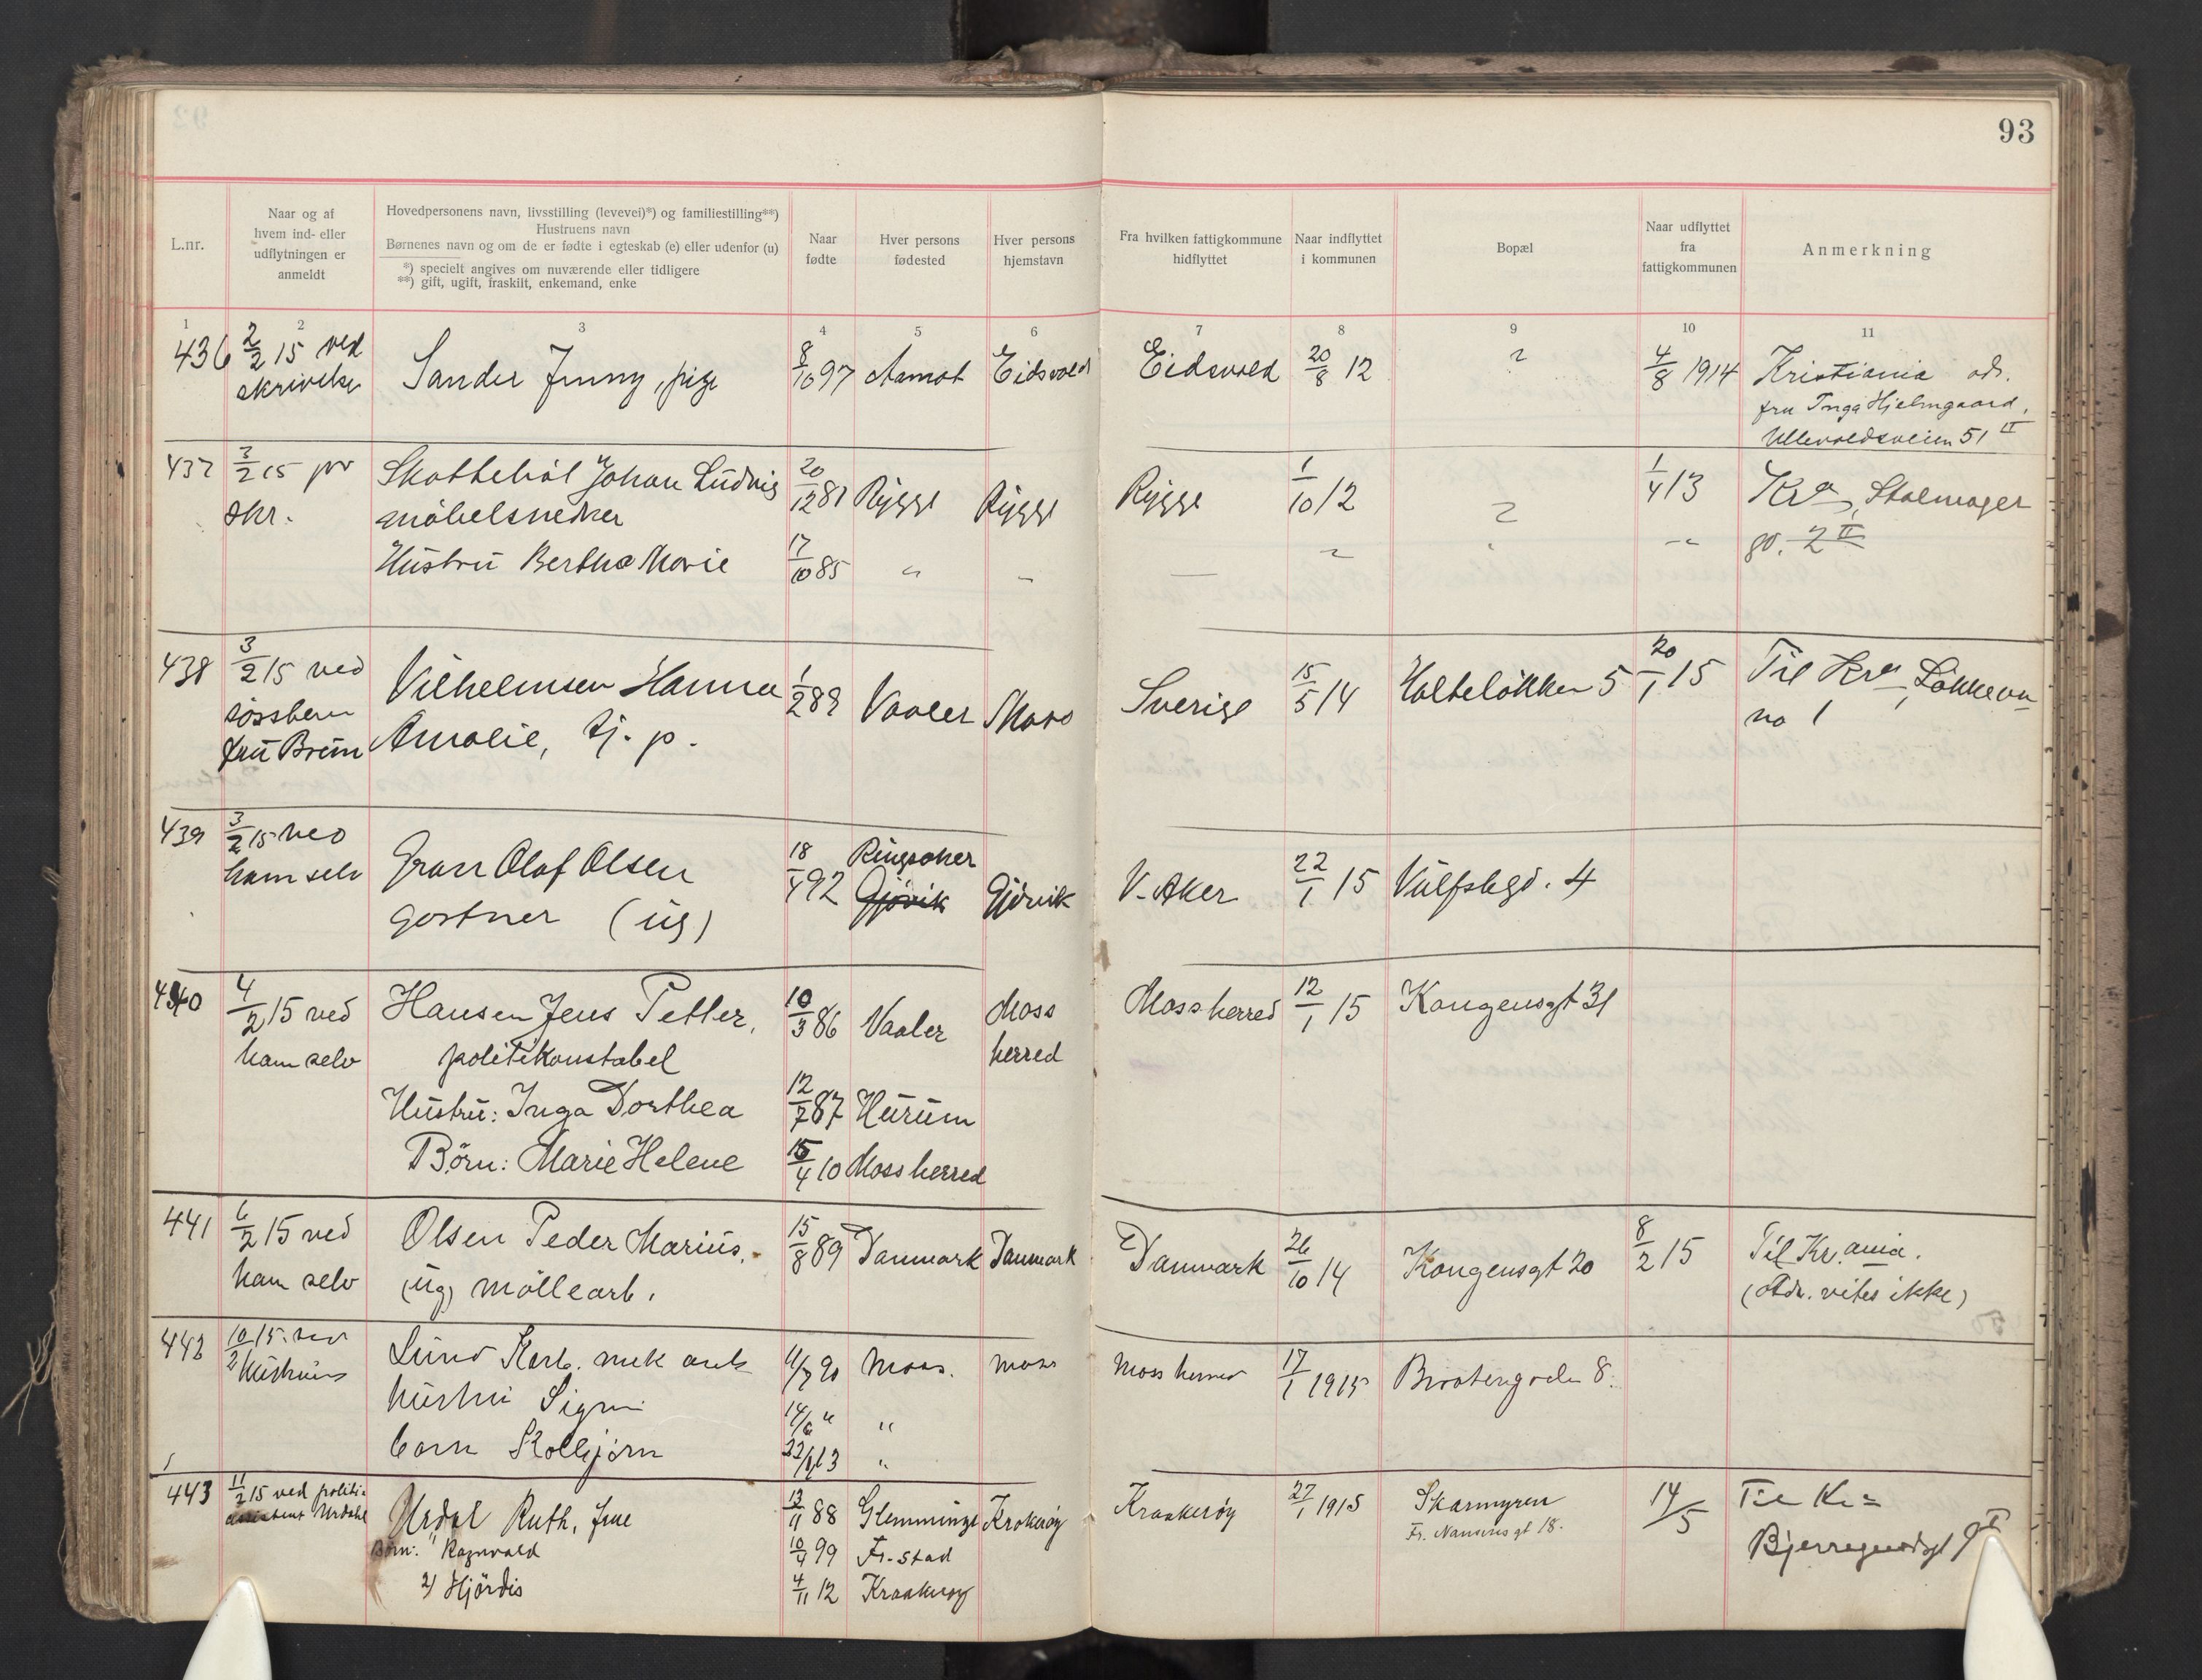 93
L.nr.
Naar og af
hvem ind- eller
udflytningen er
anmeldt
Hovedpersonens navn, livsstilling (levevei)*) og familiestilling**)
Hustruens navn
Børnenes navn og om de er fødte i egteskab (e) eller udenfor (u)
*) specielt angives om nuværende eller tidligere
**) gift, ugift, fraskilt, enkemand, enke
Naar
fødte
Hver persons
fødested
Hver persons
hjemstavn
Fra hvilken fattigkommune
hidflyttet
Naar indflyttet
i kommunen
Bopæl
Naar udflyttet
fra
fattigkommunen
Anmerkning
1 2 3 4 5 6 7 8 9 10 11
436 2/2 15 ved Sander Jenny, pige 8/10 97 Aamot Eidsvold Eidsvold 20/8 12 ? 4/8 1914 Kristiania adr.
skrivelse fru Inga Hjelmgaard,
Ullevoldsveien 51 II
437 3/2 15 pr Skottebøl Johan Ludvig 20/12 81 Rygge Rygge Rygge 1/10 12 ? 1/4 13 Kra, Stolmager
skr. møbelsnedker gt. 2 II
Hustru Bertha Marie 17/10 85 " -
438 3/2 15 ved Vilhelmsen Hanna 1/2 89 Vaaler Moss Sverige 15/5 14 Holteløkken 5 20/1 15 Til Kra, Løkkevn
søsteren Amalie, tj. p. no 1
fru Brun
439 3/2 15 ved Gran Olaf Olsen 18/4 92 Ringsaker Gjøvik Gjøvik V. Aker 22/1 15 Vulfsbgd. 4
ham selv gartner (ug)
440 4/2 15 ved Hansen Jens Petter, 10/3 86 Vaaler Moss herred Moss herred 12/1 15 Kongensgt 31
ham selv politikonstabel
Hustru: Inga Dorthea 12/7 87 Hurum
Børn: Marie Helene 15/4 10 Moss herred
441 6/2 15 ved Olsen Peder Marius, 15/8 89 Danmark Danmark Danmark 26/10 14 Kongensgt 20 8/2 15 Til Kr.ania.
ham selv (ug) møllearb. (Adr. vites ikke)
442 10/2 15 ved Lund Karl. mek arb 11/7 90 Moss. Moss Moss herred 17/1 1915 8.
hustruen hustru Sigrun 14/6 " "
barn Kolbjørn 22/1 13 "
443 11/2 15 ved politi- Urdal Ruth, frue 13/11 88 Glemminge Krakerøy Kraakerøy 27/1 1915 Skarmyren 14/5 Til Kr.
assistent Urdahl Fr. Nansens gt 18.
Børn: " Ragnvald 10/4 99 Fr.stad Bjerregaardsgt 9 II
2) Hjørdis 4/11 12 Kraakerøy